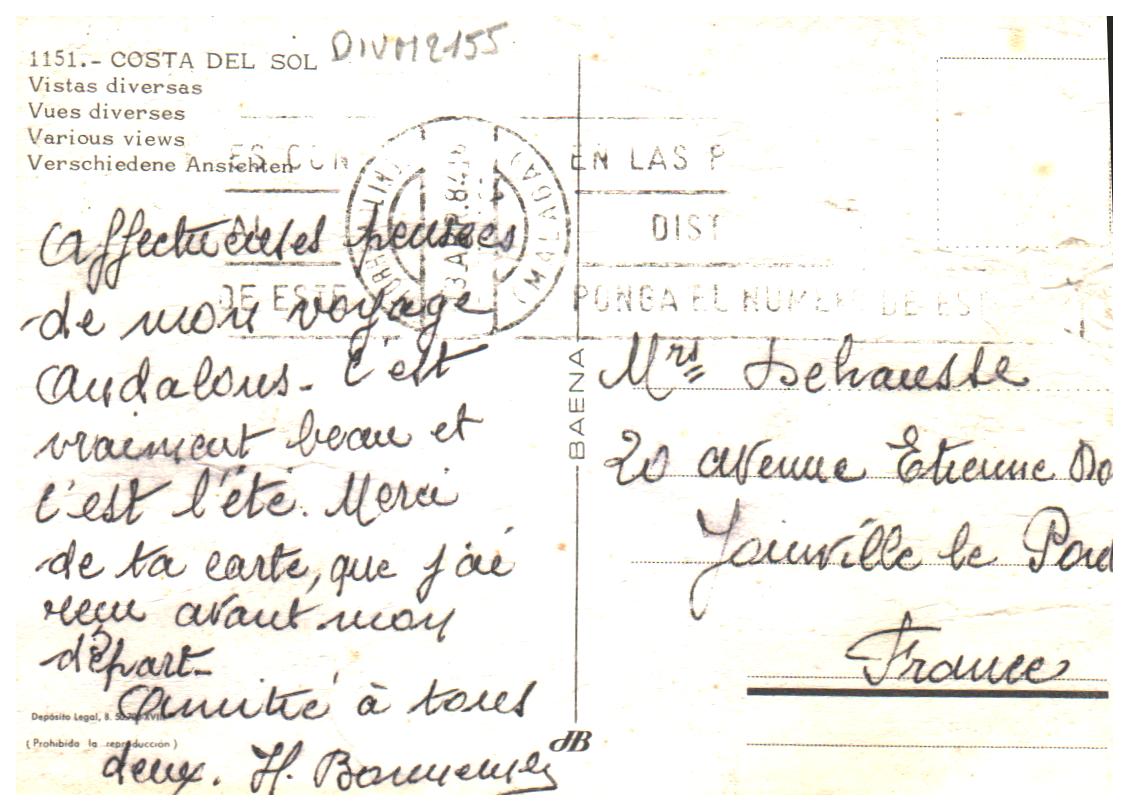 DIVM2155
1151.- COSTA DEL SOL
Vistas diversas
Vues diverses
Various views
Verschiedene Ansichten
EN LAS P
DIST
DE ESTE
PONGA EL NUMERO DE ES
(MALAGA)
Affectueuses pensées
de mon voyage
andalous - C'est
vraiment beau et
c'est l'été. Merci
de ta carte, que j'ai
reçu avant mon
départ-
Amitié à tous
deux. H.
Depósito Legal, B.
(Prohibida la reproducción)
BAENA
JB
Mrs Dehausse
20 avenue Etienne Do
Joinville le Pon
France